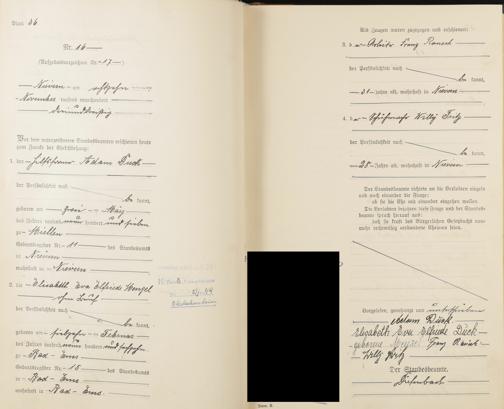 Blatt 36
Nr. 16
(Aufgebotsverzeichnis Nr. 17)
Nievern am achtzehn
November tausend neunhundert
dreiunddreißig
Vor dem unterzeichneten Standesbeamten erschienen heute
zum Zwecke der Eheschließung:
1. der Adam Dück
der Persönlichkeit nach
be kannt,
geboren am zwei März
des Jahres tausend neun hundert und sieben
zu Miellen
Geburtsregister Nr. 11 des Standesamts
in Nievern
wohnhaft in Nievern
2. die Elisabeth Eva Elfriede Menzel
ohne Beruf
der Persönlichkeit nach
be kannt,
geboren am Februar
des Jahres tausend neun hundert und
zu Bad-Ems
Geburtsregister Nr. 15 des Standesamts
in Bad-Ems
wohnhaft in Bad-Ems.
Als Zeugen waren zugezogen und erschienen:
3. der Arbeiter Franz
der Persönlichkeit nach
be kannt,
31 Jahre alt, wohnhaft in Nievern
4. der Willy Fritz
der Persönlichkeit nach
be kannt,
28 Jahre alt, wohnhaft in Nievern
Der Standesbeamte richtete an die Verlobten einzeln
und nach einander die Frage:
ob sie die Ehe mit einander eingehen wollen.
Die Verlobten bejahten diese Frage und der Standes-
beamte sprach hierauf aus:
daß sie kraft des Bürgerlichen Gesetzbuchs nun-
mehr rechtmäßig verbundene Eheleute seien.
Vorgelesen, genehmigt und unterschrieben
Adam Dück
Elisabeth Eva Elfriede Dück
geborene Menzel Franz
Willy Fritz
Der Standesbeamte.